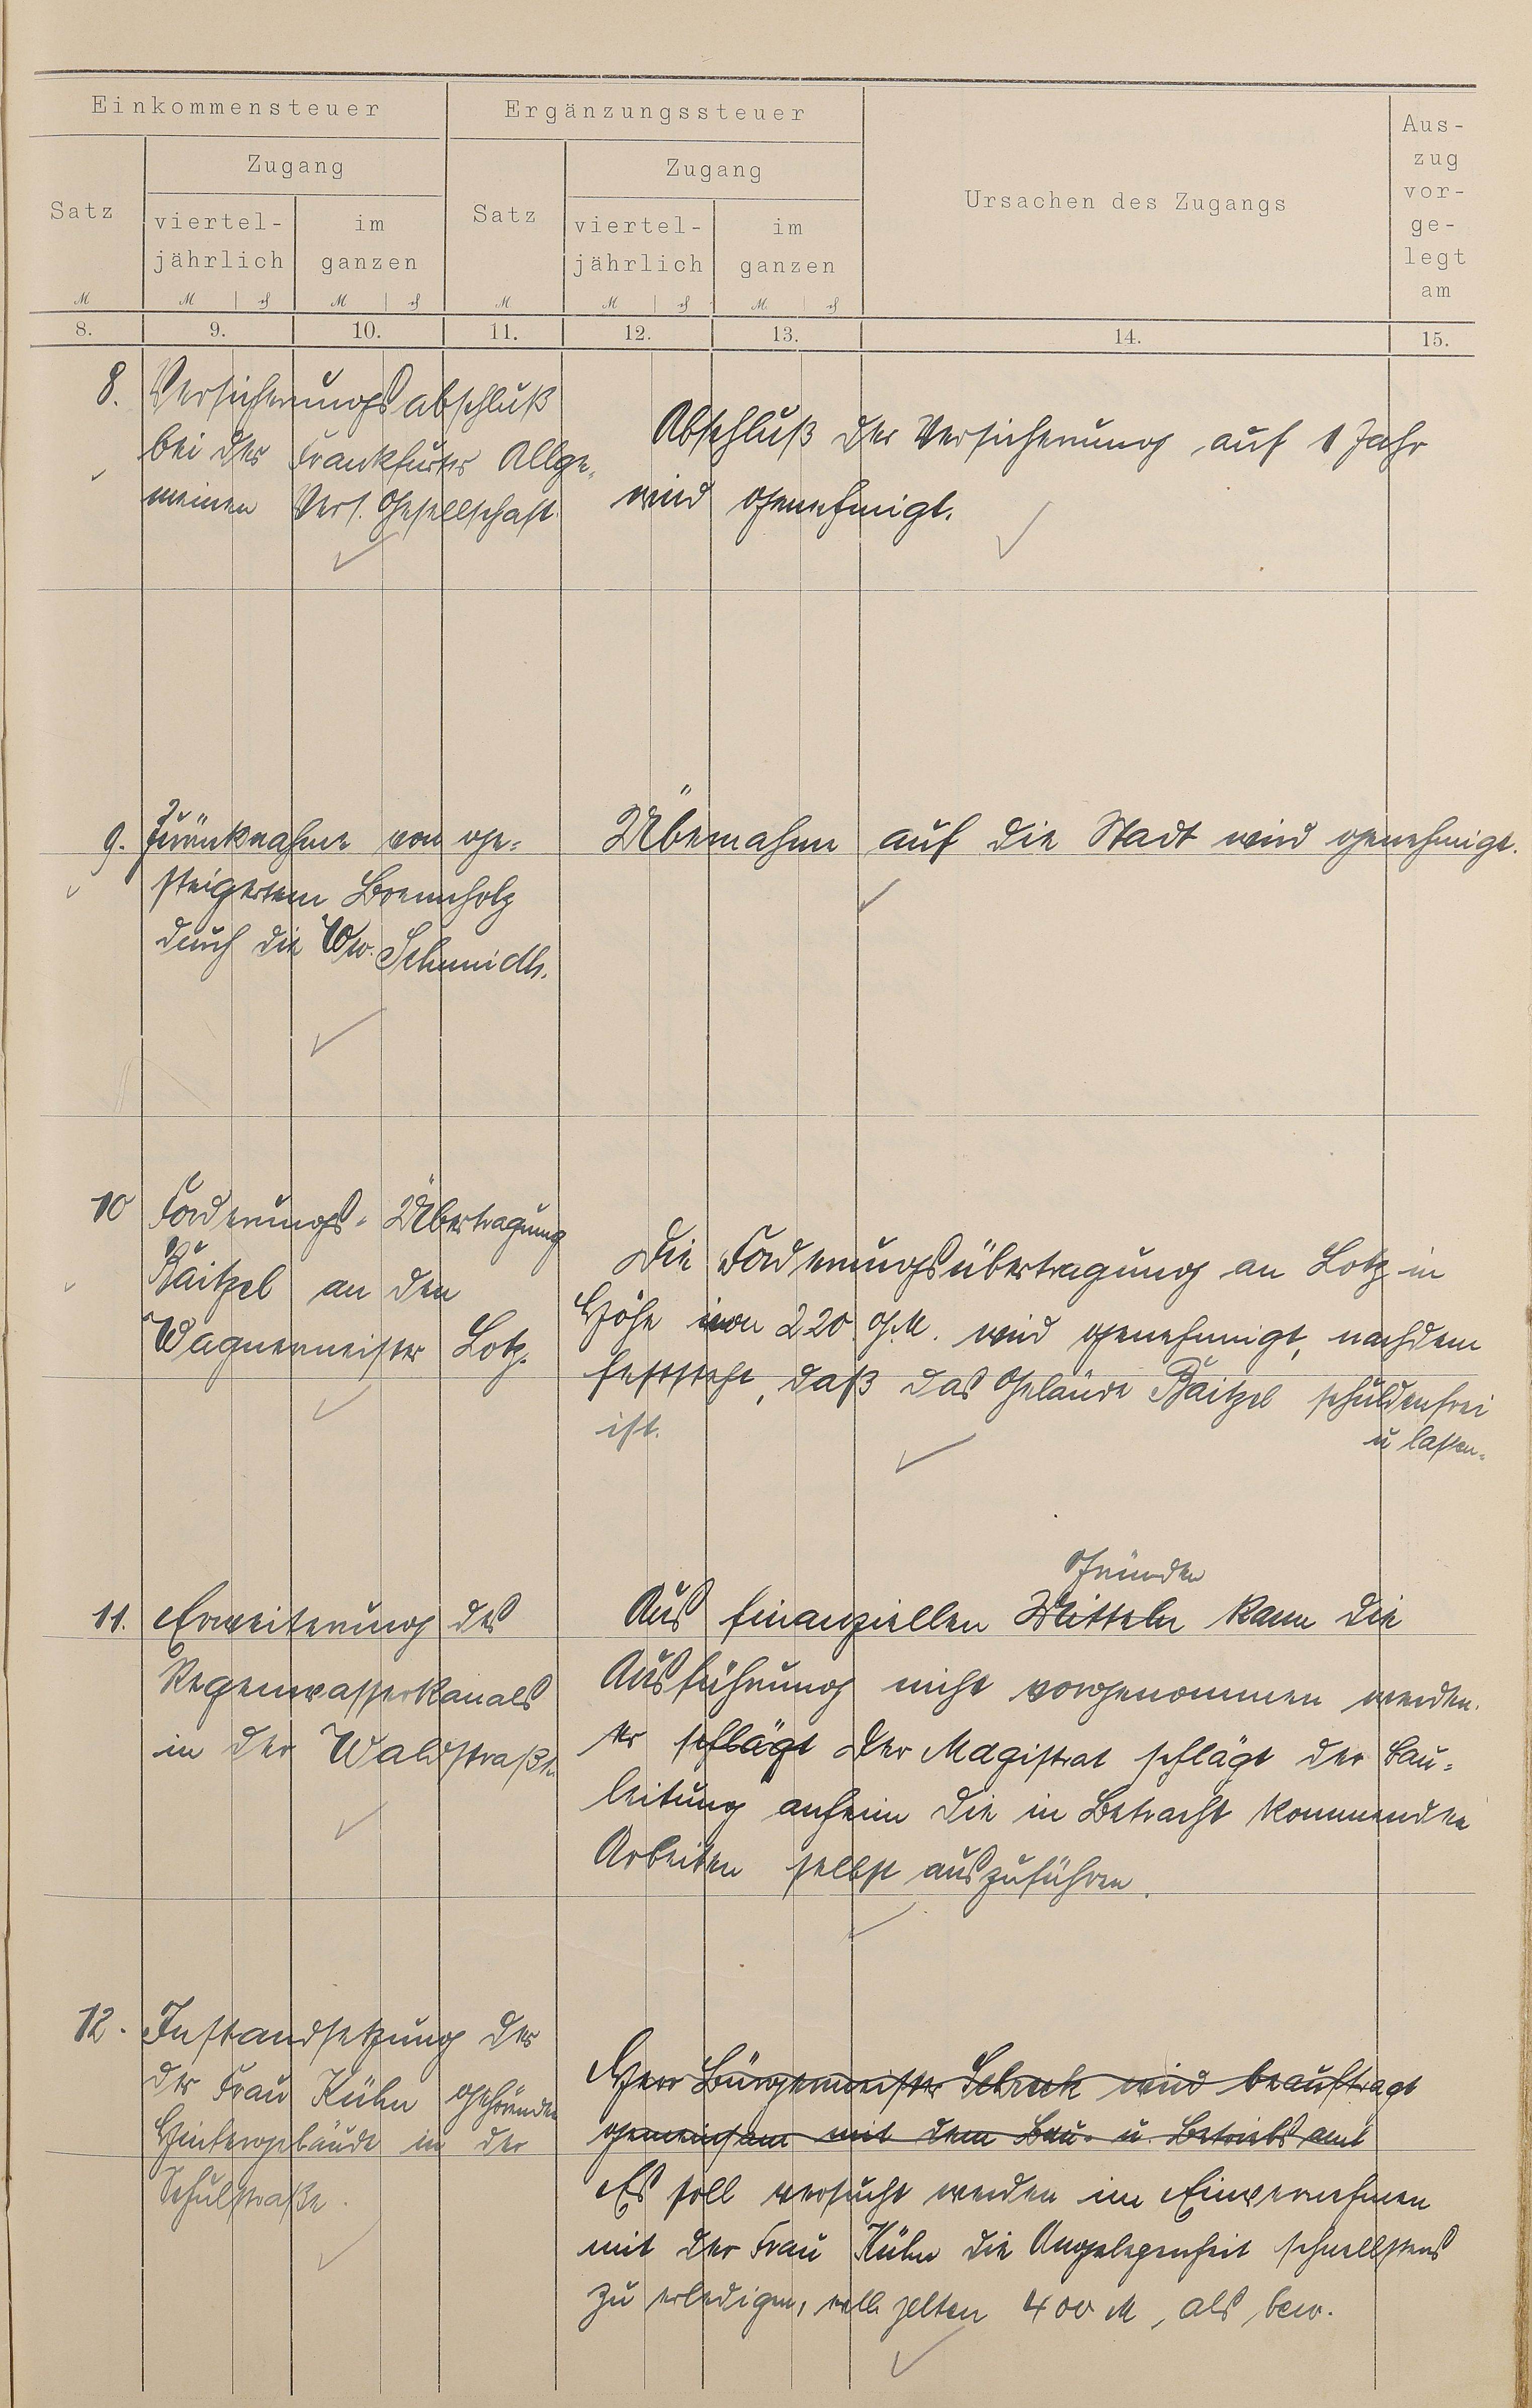 Einkommensteuer
Ergänzungssteuer
Ursachen des Zugangs
Aus-
zug
vor-
ge-
legt
am
Satz
Zugang
viertel-
jährlich
im
ganzen
Satz
Zugang
viertel-
jährlich
im
ganzen
M
M
M
M
M
M
8. 9. 10. 11. 12. 13. 14. 15.
8. Versicherungsabschluß
bei der Frankfurter Allge-
meinen Vers. Gesellschaft.
Abschluß der Versicherung auf 1 Jahr
wird genehmigt.
9. Zurücknahme von ge-
steigertem Brennholz
durch die Ww. Schmidt.
Übernahme auf die Stadt wird genehmigt.
10 Forderungs-Übertragung
Baitzel an den
Wagnermeister Lotz.
Die Forderungsübertragung an Lotz in
Höhe von 220 G.M. wird genehmigt, nachdem
feststeht, daß das Gelände Baitzel schuldenfrei
u lasten-
ist.
11. Erweiterung des
Regenwasserkanals
in der Waldstraße.
Gründen
Aus finanziellen Mitteln kann die
Ausführung nicht vorgenommen werden.
er schlägt Der Magistrat schlägt der Bau-
leitung anheim die in Betracht kommenden
Arbeiten selbst auszuführen.
12. Instandsetzung des
der Frau Kühn
Hintergebäude in der
Schulstraße.
Herr Bürgermeister Schuck wird beauftragt
gemeinsam mit dem Bau- u. Betriebsamt
Es soll versucht werden im Einvernehmen
mit der Frau Kühn die Angelegenheit schnellstens
zu erledigen, 400 M, als